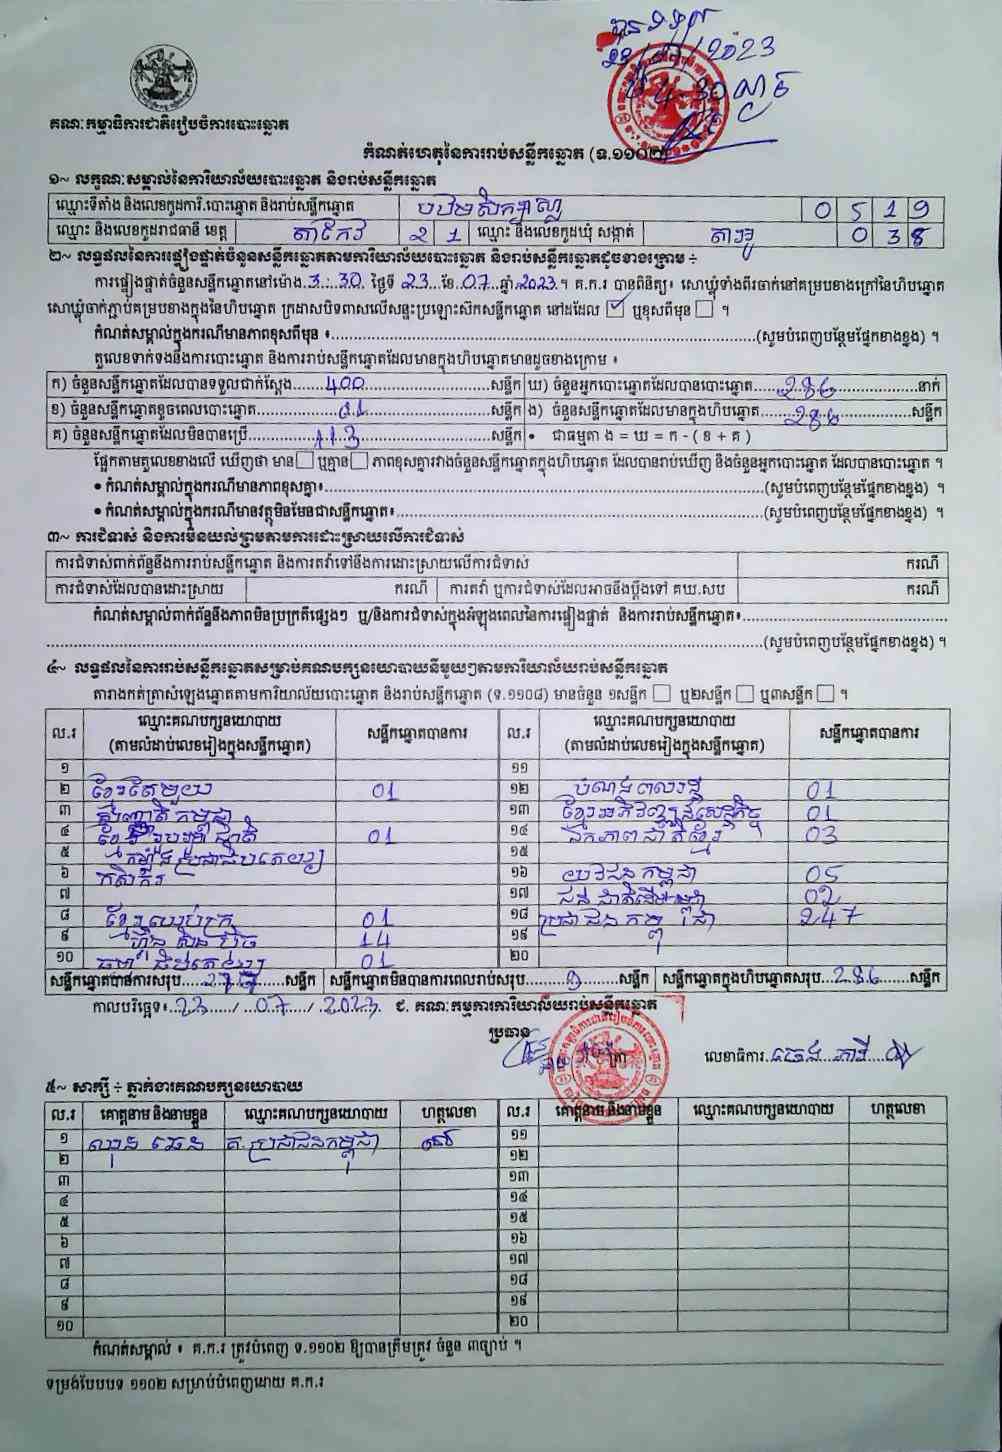 បានទទួល
23/07/2023
ម៉ 4:30 ល្ងាច
គណៈកម្មាធិការជាតិរៀបចំការបោះឆ្នោត
កំណត់ហេតុនៃការរាប់សន្លឹកឆ្នោត (ទ.១១០២)
១~ លក្ខណៈសម្គាល់នៃការិយាល័យបោះឆ្នោត និងរាប់សន្លឹកឆ្នោត
ឈ្មោះទីតាំង និងលេខកូដការិ.បោះឆ្នោត និងរាប់សន្លឹកឆ្នោត បឋមសិក្សា 0 5 1 9
ឈ្មោះ និងលេខកូដរាជធានី ខេត្ត តាកែវ 2 1 ឈ្មោះ និងលេខកូដឃុំ សង្កាត់ 0 3 8
២~ លទ្ធផលនៃការផ្ទៀងផ្ទាត់ចំនួនសន្លឹកឆ្នោតតាមការិយាល័យបោះឆ្នោត និងរាប់សន្លឹកឆ្នោតដូចខាងក្រោម ÷
ការផ្ទៀងផ្ទាត់ចំនួនសន្លឹកឆ្នោតនៅម៉ោង 3:30 ថ្ងៃទី 23 ខែ 07 ឆ្នាំ 2023 ។ គ.ក.រ បានពិនិត្យ៖ សោឃ្លុំទាំងពីរចាក់នៅគម្របខាងក្រៅនៃហិបឆ្នោត
សោឃ្លុំចាក់ភ្ជាប់គម្របខាងក្នុងនៃហិបឆ្នោត ក្រដាសបិទពាសលើសន្ទះប្រឡោះស៊កសន្លឹកឆ្នោត នៅដដែល ☑ ឬខុសពីមុន ☐ ។
កំណត់សម្គាល់ក្នុងករណីមានភាពខុសពីមុន ៖ (សូមបំពេញបន្ថែមផ្នែកខាងខ្នង) ។
តួលេខទាក់ទងនឹងការបោះឆ្នោត និងការរាប់សន្លឹកឆ្នោតដែលមានក្នុងហិបឆ្នោតមានដូចខាងក្រោម ៖
ក) ចំនួនសន្លឹកឆ្នោតដែលបានទទួលជាក់ស្តែង 400 សន្លឹក ឃ) ចំនួនអ្នកបោះឆ្នោតដែលបានបោះឆ្នោត 286 នាក់
ខ) ចំនួនសន្លឹកឆ្នោតខូចពេលបោះឆ្នោត 01 សន្លឹក ង) ចំនួនសន្លឹកឆ្នោតដែលមានក្នុងហិបឆ្នោត 286 សន្លឹក
គ) ចំនួនសន្លឹកឆ្នោតដែលមិនបានប្រើ 113 សន្លឹក • ជាធម្មតា ង = ឃ = ក - ( ខ + គ )
ផ្អែកតាមតួលេខខាងលើ ឃើញថា មាន ☐ ឬគ្មាន ☐ ភាពខុសគ្នារវាងចំនួនសន្លឹកឆ្នោតក្នុងហិបឆ្នោត ដែលបានរាប់ឃើញ និងចំនួនអ្នកបោះឆ្នោត ដែលបានបោះឆ្នោត ។
• កំណត់សម្គាល់ក្នុងករណីមានភាពខុសគ្នា៖ (សូមបំពេញបន្ថែមផ្នែកខាងខ្នង) ។
• កំណត់សម្គាល់ក្នុងករណីមានវត្ថុមិនមែនជាសន្លឹកឆ្នោត៖ (សូមបំពេញបន្ថែមផ្នែកខាងខ្នង) ។
៣~ ការជំទាស់ និងការមិនយល់ព្រមតាមការដោះស្រាយលើការជំទាស់
ការជំទាស់ពាក់ព័ន្ធនឹងការរាប់សន្លឹកឆ្នោត និងការតវ៉ាទៅនឹងការដោះស្រាយលើការជំទាស់ ករណី
ការជំទាស់ដែលបានដោះស្រាយ ករណី ការតវ៉ា ឬការជំទាស់ដែលអាចនឹងប្តឹងទៅ គឃ.សប ករណី
កំណត់សម្គាល់ពាក់ព័ន្ធនឹងភាពមិនប្រក្រតីផ្សេងៗ ឬ/និងការជំទាស់ក្នុងអំឡុងពេលនៃការផ្ទៀងផ្ទាត់ និងការរាប់សន្លឹកឆ្នោត៖
(សូមបំពេញបន្ថែមផ្នែកខាងខ្នង) ។
៤~ លទ្ធផលនៃការរាប់សន្លឹកឆ្នោតសម្រាប់គណបក្សនយោបាយនីមួយៗតាមការិយាល័យរាប់សន្លឹកឆ្នោត
តារាងកត់ត្រាសំឡេងឆ្នោតតាមការិយាល័យបោះឆ្នោត និងរាប់សន្លឹកឆ្នោត (ទ.១១០៨) មានចំនួន ១សន្លឹក ☐ ឬ២សន្លឹក ☐ ឬ៣សន្លឹក ☐ ។
ល.រ ឈ្មោះគណបក្សនយោបាយ (តាមលំដាប់លេខរៀងក្នុងសន្លឹកឆ្នោត) សន្លឹកឆ្នោតបានការ ល.រ ឈ្មោះគណបក្សនយោបាយ (តាមលំដាប់លេខរៀងក្នុងសន្លឹកឆ្នោត) សន្លឹកឆ្នោតបានការ
១ ១១
២ ខ្មែរតែមួយ 01 ១២ បំណងពលរដ្ឋ 01
៣ សញ្ជាតិកម្ពុជា ១៣ ខ្មែរអភិវឌ្ឍន៍សេដ្ឋកិច្ច 01
៤ ខ្មែររួបរួមជាតិ 01 ១៤ ឯកភាពជាតិខ្មែរ 03
៥ កម្លាំងប្រជាធិបតេយ្យ ១៥
៦ កសិករ ១៦ យុវជនកម្ពុជា 05
៧ ១៧ ជនជាតិដើមកម្ពុជា 02
៨ ខ្មែរឈប់ក្រ 01 ១៨ ប្រជាជនកម្ពុជា 247
៩ ហ្វ៊ុនស៊ិនប៉ិច 14 ១៩
១០ ធម្មាធិបតេយ្យ 01 ២០
សន្លឹកឆ្នោតបានការសរុប 277 សន្លឹក សន្លឹកឆ្នោតមិនបានការពេលរាប់សរុប 9 សន្លឹក សន្លឹកឆ្នោតក្នុងហិបឆ្នោតសរុប 286 សន្លឹក
កាលបរិច្ឆេទ៖ 23 / 07 / 2023 ជ. គណៈកម្មការការិយាល័យរាប់សន្លឹកឆ្នោត
ប្រធាន លេខាធិការ
៥~ សាក្សី ÷ ភ្នាក់ងារគណបក្សនយោបាយ
ល.រ គោត្តនាម និងនាមខ្លួន ឈ្មោះគណបក្សនយោបាយ ហត្ថលេខា ល.រ គោត្តនាម និងនាមខ្លួន ឈ្មោះគណបក្សនយោបាយ ហត្ថលេខា
១ ឈុន ឆេន គ.ប្រជាជនកម្ពុជា ១១
២ ១២
៣ ១៣
៤ ១៤
៥ ១៥
៦ ១៦
៧ ១៧
៨ ១៨
៩ ១៩
១០ ២០
កំណត់សម្គាល់ ៖ គ.ក.រ ត្រូវបំពេញ ទ.១១០២ ឱ្យបានត្រឹមត្រូវ ចំនួន ៣ច្បាប់ ។
ទម្រង់បែបបទ ១១០២ សម្រាប់បំពេញដោយ គ.ក.រ